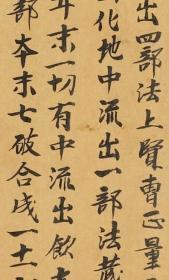 出四部法上賢胄正量
化地中流出一部法藏
年末一切有中流出飲
部本末七破合成一十一